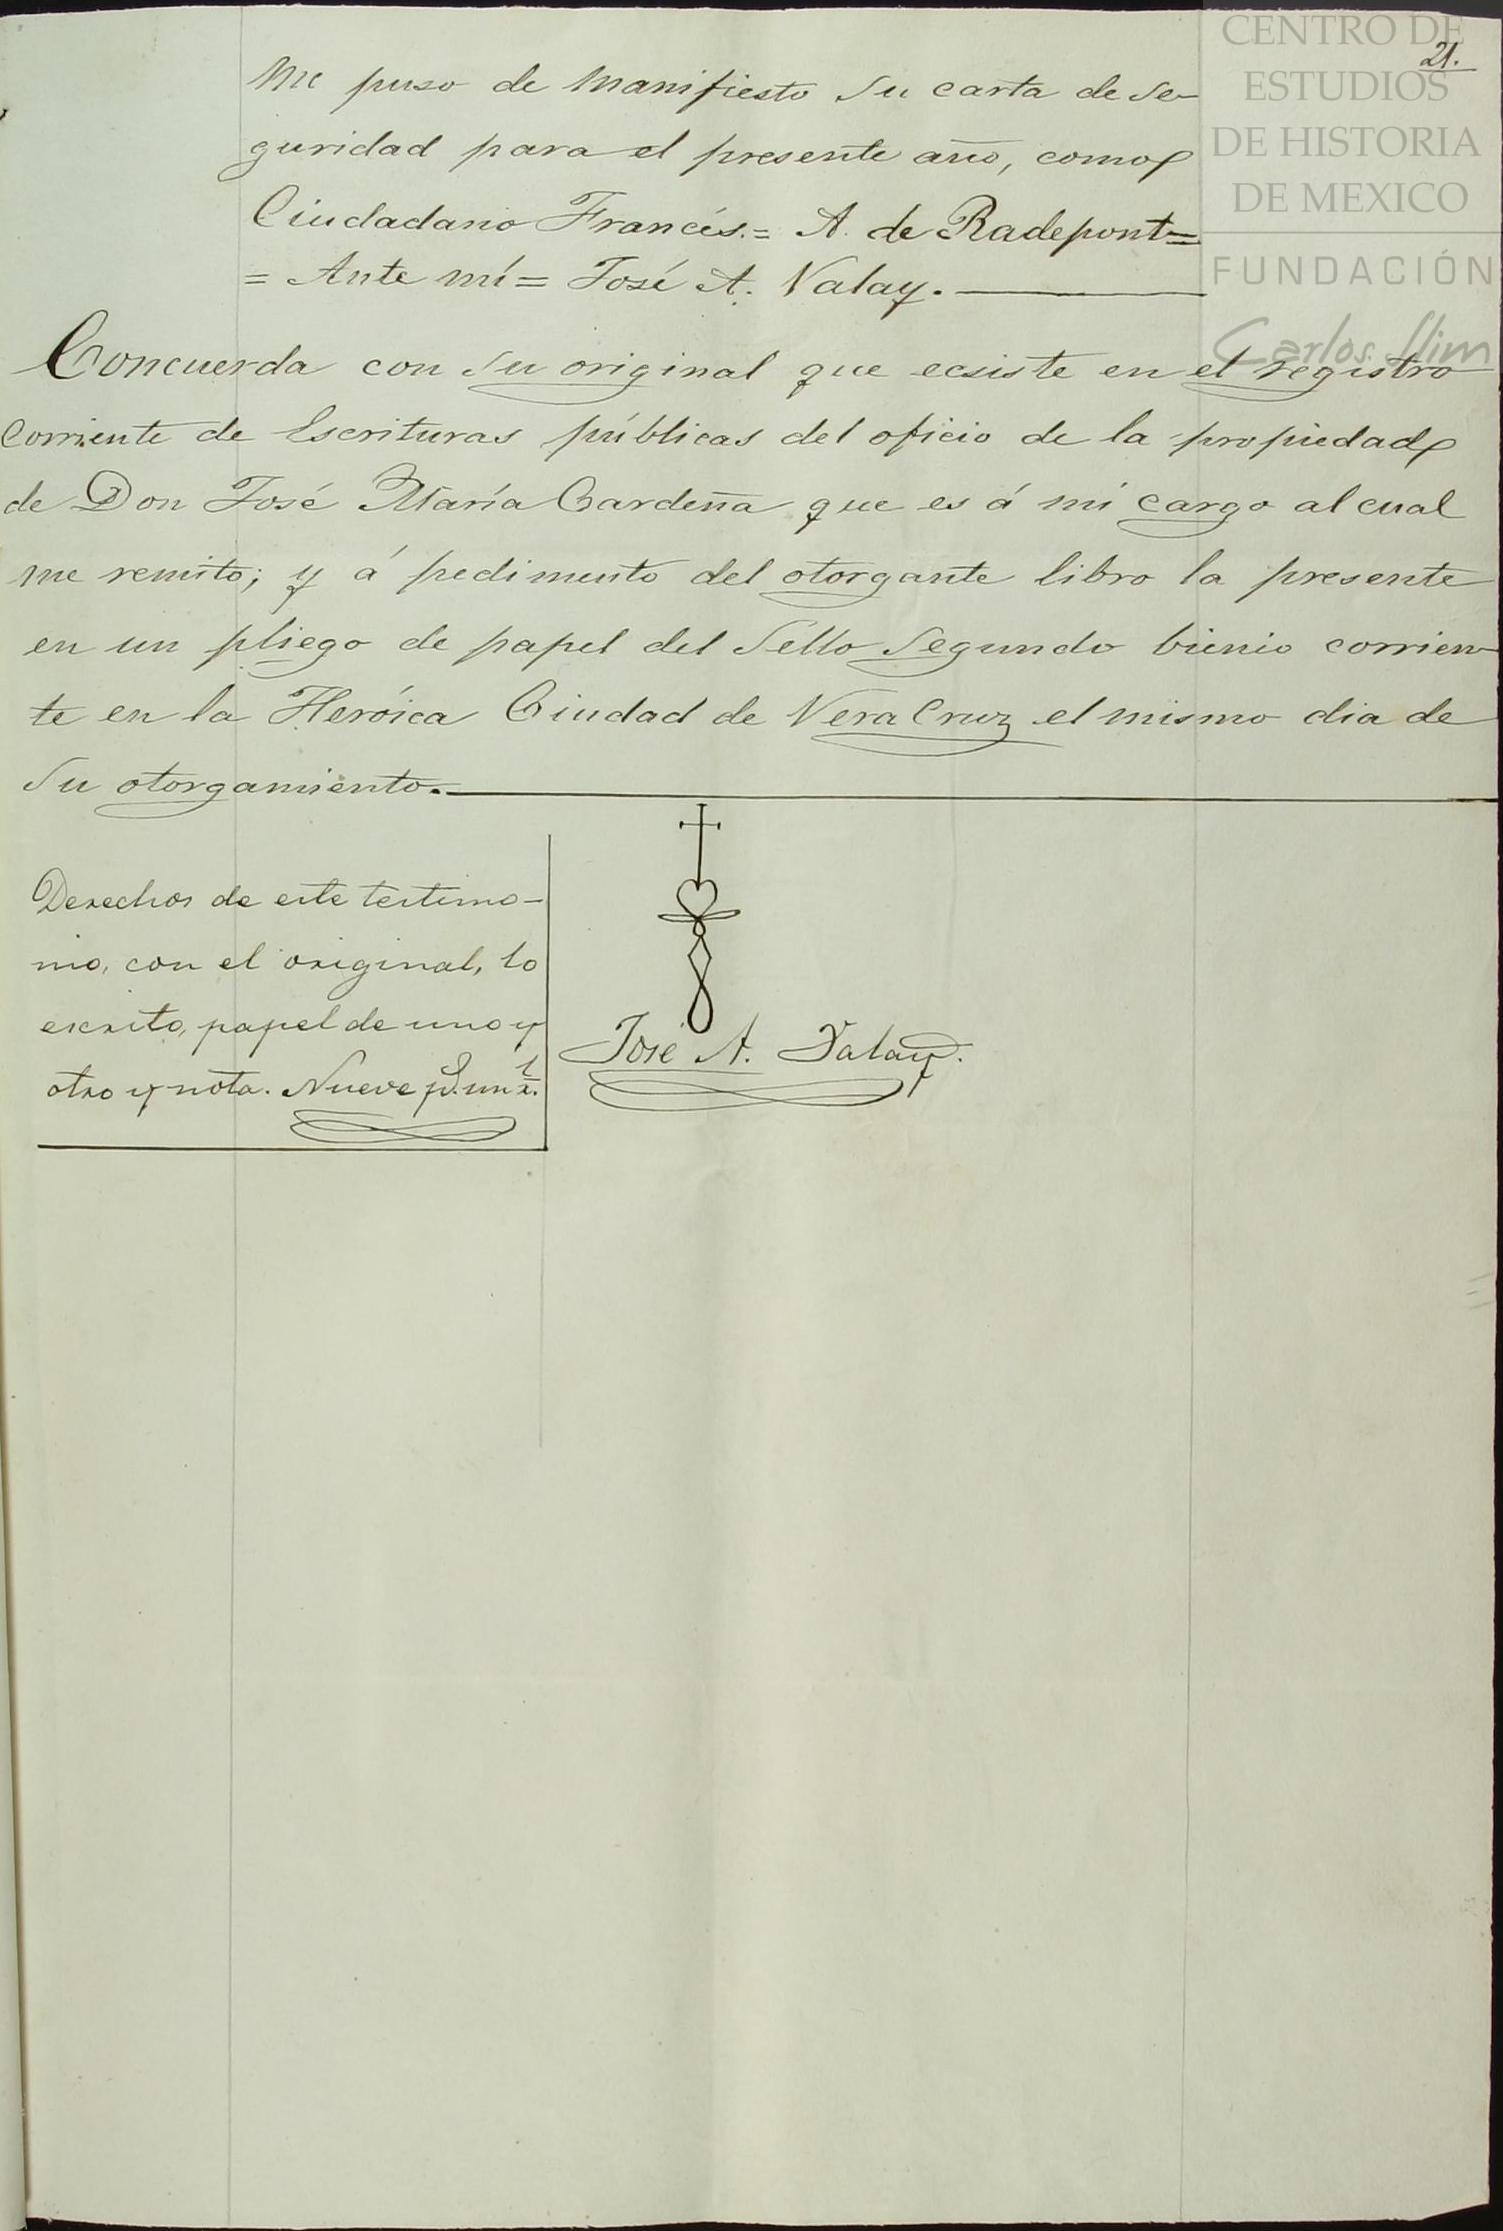 CENTRO DE
ESTUDIOS
DE HISTORIA
DE MEXICO
FUNDACIÓN
Carlos Slim
21.
Me puso de manifiesto su carta de se-
guridad para el presente año, como
Ciudadano Francés.= A. de Radepont=
= Ante mí= José A. Valay.
Concuerda con su original que ecsiste en el registro
corriente de Escrituras públicas del oficio de la propiedad
de Don José María Cardeña que es á mi cargo al cual
me remito; y á pedimento del otorgante libro la presente
en un pliego de papel del Sello Segundo bienio corrien-
te en la Heróica Ciudad de Vera Cruz el mismo dia de
su otorgamiento.
Derechos de este testimo-
nio, con el original, lo
escrito, papel de uno y
otro y nota. Nueve p.s un r.l
José A. Valay.